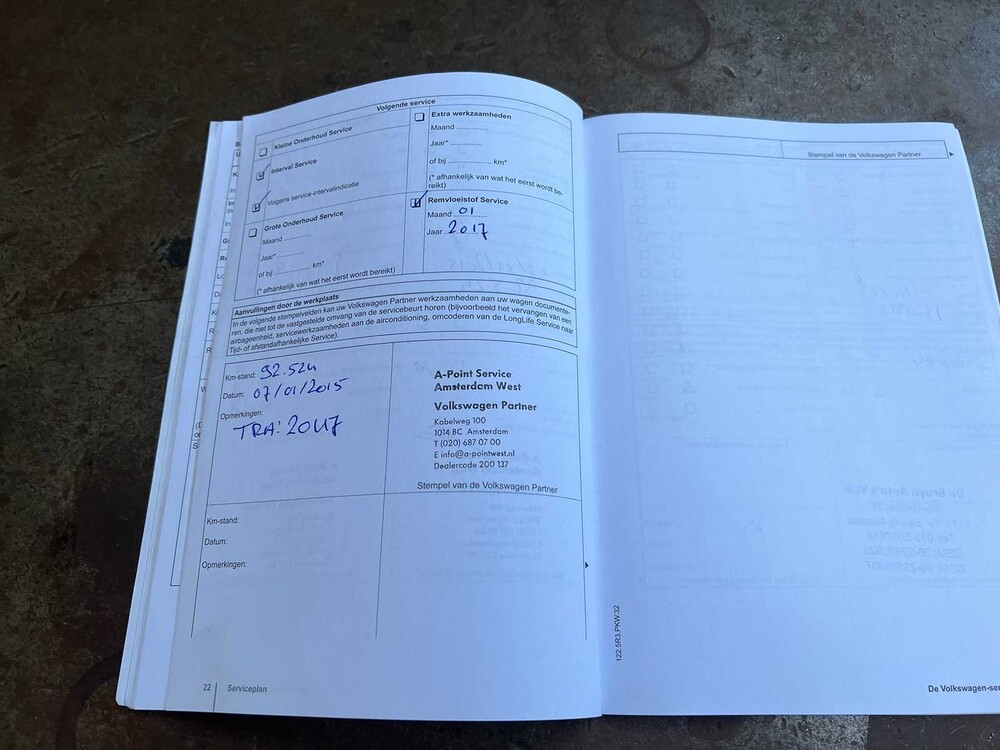 Volgende service
Kleine Onderhoud Service
Interval Service
Volgens service-intervalindicatie
Grote Onderhoud Service
Maand ..........
Jaar* ..........
of bij .............. km*
(* afhankelijk van wat het eerst wordt bereikt)
Extra werkzaamheden
Maand ..............
Jaar* ..............
of bij .............. km*
(* afhankelijk van wat het eerst wordt be-
reikt)
Remvloeistof Service
Maand 01
Jaar 2017
Aanvullingen door de werkplaats
In de volgende stempelvelden kan uw Volkswagen Partner werkzaamheden aan uw wagen documente-
ren, die niet tot de vastgestelde omvang van de servicebeurt horen (bijvoorbeeld het vervangen van een
airbageenheid, servicewerkzaamheden aan de airconditioning, omcoderen van de LongLife Service naar
Tijd- of afstandafhankelijke Service).
Km-stand: 92.524
Datum: 07/01/2015
Opmerkingen:
A-Point Service
Amsterdam West
Volkswagen Partner
Kabelweg 100
1014 BC Amsterdam
T (020) 687 07 00
E info@a-pointwest.nl
Dealercode 200 137
Stempel van de Volkswagen Partner
Km-stand:
Datum:
Opmerkingen:
22 Serviceplan
Stempel van de Volkswagen Partner
122.5R3.PKW.32
De Volkswagen-ser